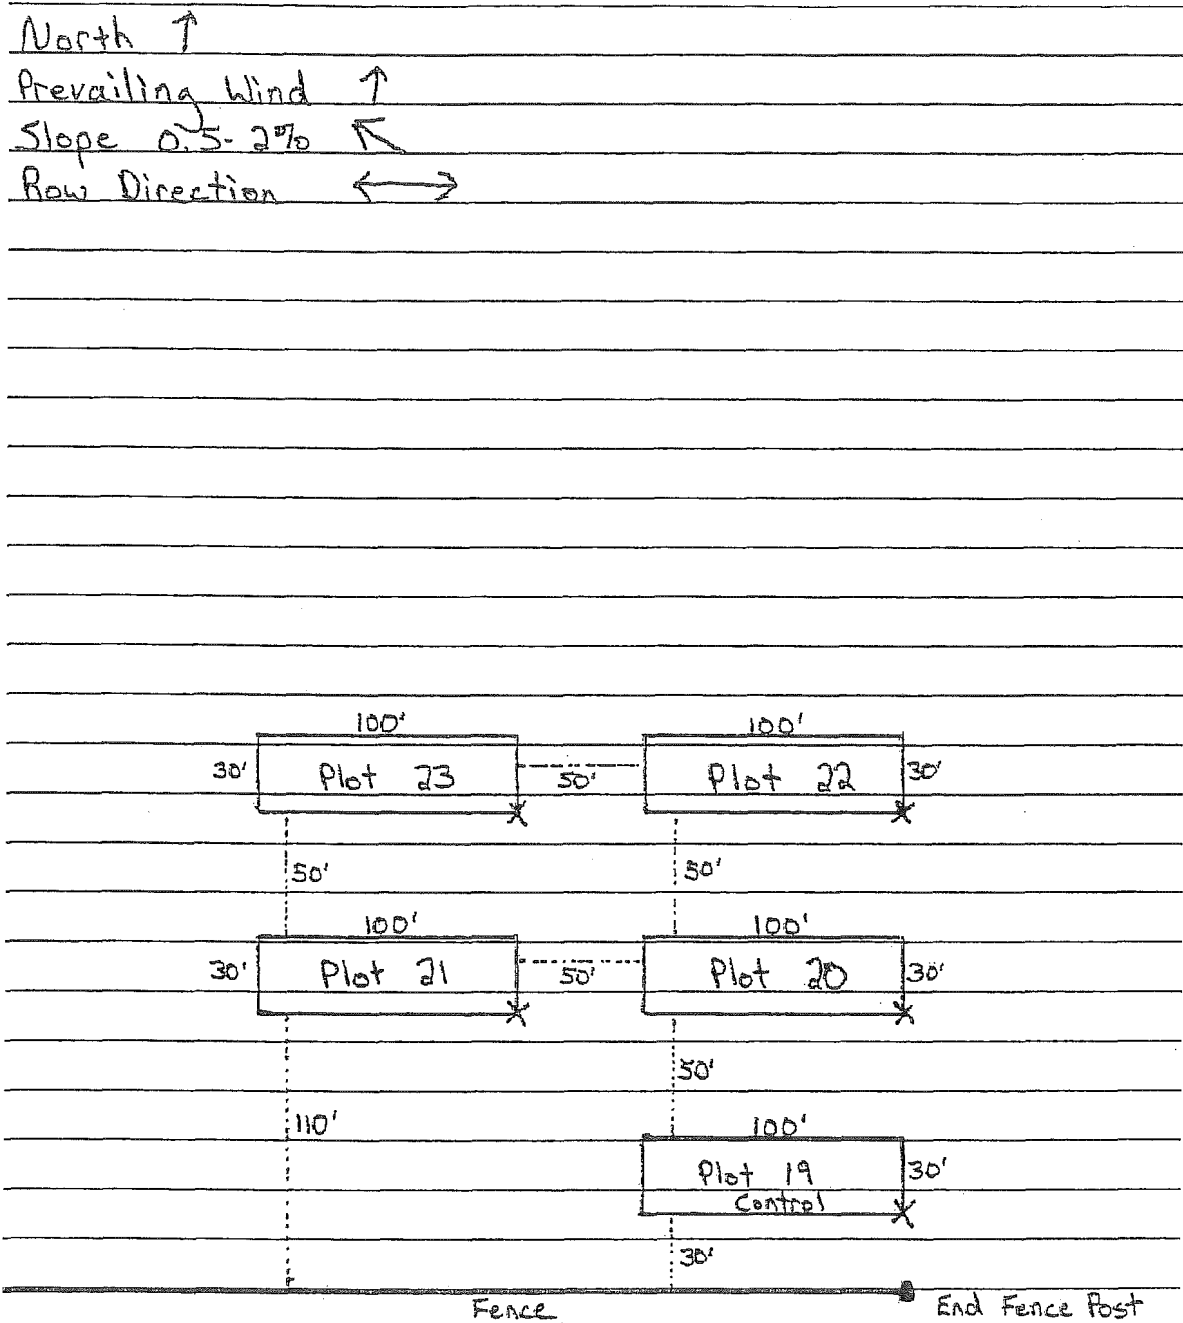 North ↑
Prevailing Wind ↑
Slope 0.5-2% ↖
Row Direction ↔
100' 100'
30' Plot 23 50' Plot 22 30'
50' 50'
100' 100'
30' Plot 21 50' Plot 20 30'
50'
110' 100'
Plot 19 30'
Control
30'
Fence End Fence Post